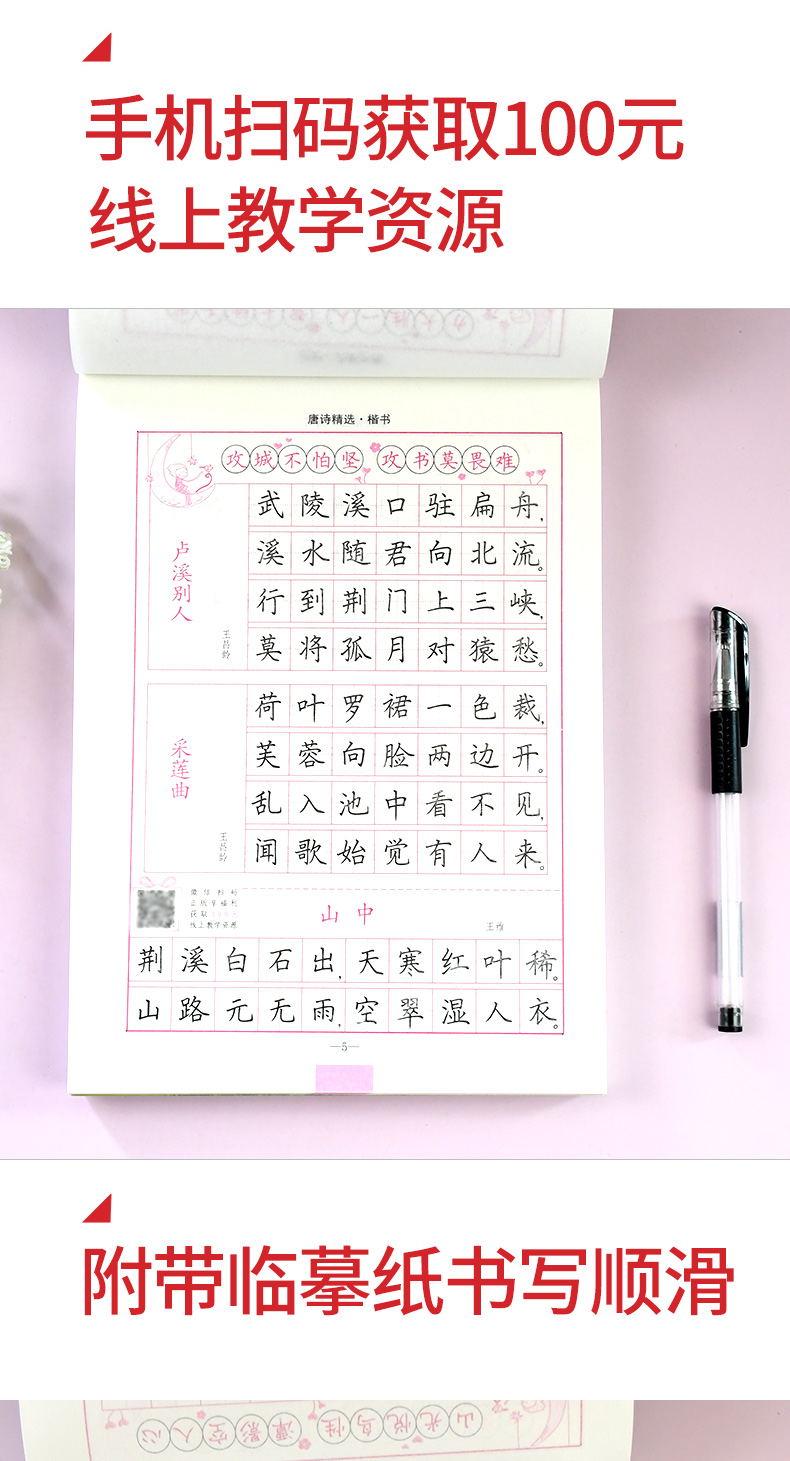 手机扫码获取100元
线上教学资源
唐诗精选·楷书
攻城不怕坚 攻书莫畏难
卢溪别人
王昌龄
武陵溪口驻扁舟，
溪水随君向北流。
行到荆门上三峡，
莫将孤月对猿愁。
采莲曲
王昌龄
荷叶罗裙一色裁，
芙蓉向脸两边开。
乱入池中看不见，
闻歌始觉有人来。
微信扫码
正版享福利
获取100元
线上教学资源
山中
王维
荆溪白石出，天寒红叶稀。
山路元无雨，空翠湿人衣。
—5—
附带临摹纸书写顺滑
山光悦鸟性 潭影空人心